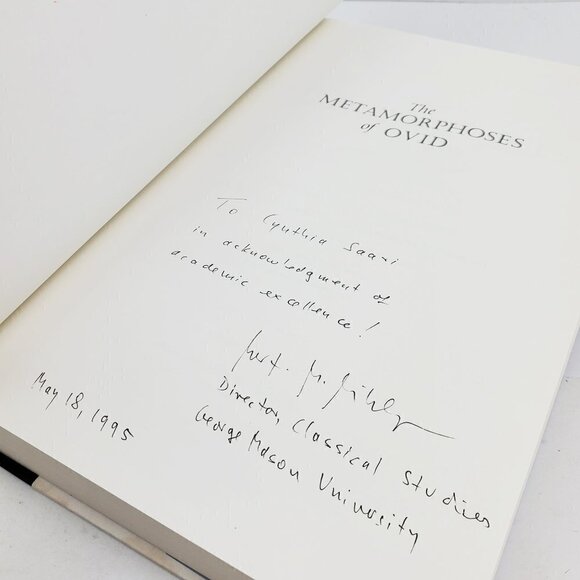 The
METAMORPHOSES
of OVID
To Cynthia Saari
in acknowledgment of
academic excellence!
Director, Classical Studies
George Mason University
May 18, 1995